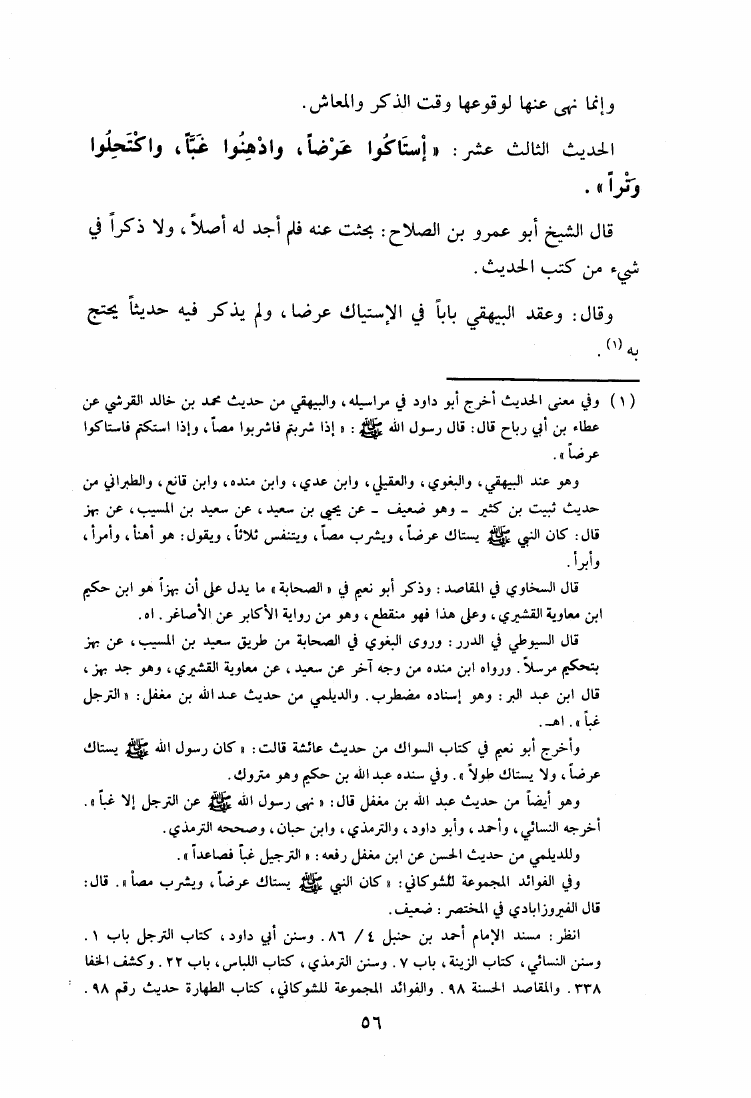 وإنما نهى عنها لوقوعها وقت الذكر والمعاش.
الحديث الثالث عشر: « إسْتَاكُوا عَرْضاً، وادْهِنُوا غَبَّاً، واكْتَحِلُوا
وَتْراً».
قال الشيخ أبو عمرو بن الصلاح: بحثت عنه فلم أجد له أصلاً، ولا ذكراً في
شيء من كتب الحديث.
وقال: وعقد البيهقي باباً في الإستياك عرضا، ولم يذكر فيه حديثاً يحتج
به (١).
(١) وفي معنى الحديث أخرج أبو داود في مراسيله، والبيهقي من حديث محمد بن خالد القرشي عن
عطاء بن أبي رباح قال: قال رسول الله ﷺ: « إذا شربتم فاشربوا مصاً، وإذا استكتم فاستاكوا
عرضاً».
وهو عند البيهقي، والبغوي، والعقيلي، وابن عدي، وابن منده، وابن قانع، والطبراني من
حديث ثبيت بن كثير - وهو ضعيف - عن يحيى بن سعيد، عن سعيد بن المسيب، عن بهز
قال: كان النبي ﷺ يستاك عرضاً، ويشرب مصاً، ويتنفس ثلاثاً، ويقول: هو أهنأ، وأمرأ،
وأبرأ.
قال السخاوي في المقاصد: وذكر أبو نعيم في « الصحابة» ما يدل على أن بهزاً هو ابن حكيم
ابن معاوية القشيري، وعلى هذا فهو منقطع، وهو من رواية الأكابر عن الأصاغر. اه.
قال السيوطي في الدرر: وروى البغوي في الصحابة من طريق سعيد بن المسيب، عن بهز
بتحكيم مرسلاً. ورواه ابن منده من وجه آخر عن سعيد، عن معاوية القشيري، وهو جد بهز،
قال ابن عبد البر: وهو إسناده مضطرب. والديلمي من حديث عبد الله بن مغفل: « الترجل
غباً». اهـ.
وأخرج أبو نعيم في كتاب السواك من حديث عائشة قالت: « كان رسول الله ﷺ يستاك
عرضاً، ولا يستاك طولاً». وفي سنده عبد الله بن حكيم وهو متروك.
وهو أيضاً من حديث عبد الله بن مغفل قال: « نهى رسول الله ﷺ عن الترجل إلا غباً».
أخرجه النسائي، وأحمد، وأبو داود، والترمذي، وابن حبان، وصححه الترمذي.
وللديلمي من حديث الحسن عن ابن مغفل رفعه: « الترجيل غباً فصاعداً».
وفي الفوائد المجموعة للشوكاني: « كان النبي ﷺ يستاك عرضاً، ويشرب مصاً». قال:
قال الفيروزابادي في المختصر: ضعيف.
انظر: مسند الإمام أحمد بن حنبل ٤/ ٨٦. وسنن أبي داود، كتاب الترجل باب ١.
وسنن النسائي، كتاب الزينة، باب ٧. وسنن الترمذي، كتاب اللباس، باب ٢٢. وكشف الخفا
٣٣٨. والمقاصد الحسنة ٩٨. والفوائد المجموعة للشوكاني، كتاب الطهارة حديث رقم ٩٨.
٥٦